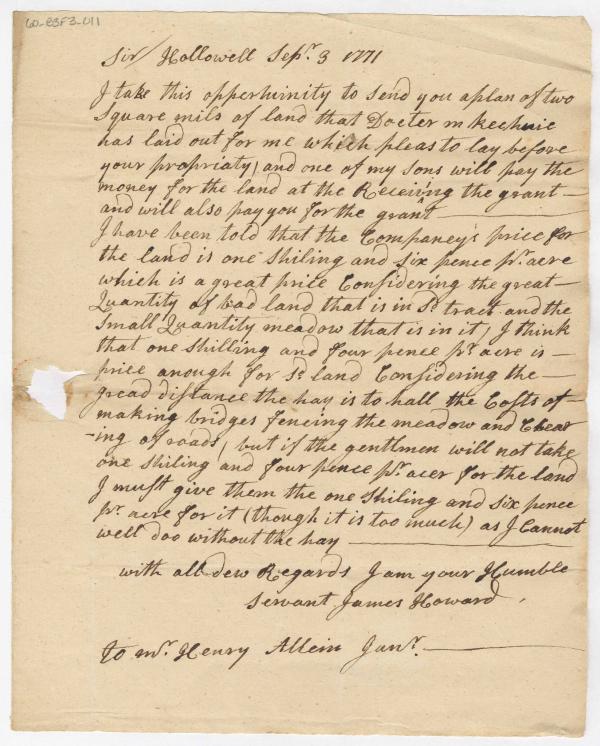 60-83F3-011
Sir/ Hollowell Sepr. 3 1771
I take this opperhinity to send you a plan of two
Square mils of land that Docter mKechnie
has laid out for me which pleas to lay before
your propriaty, and one of my sons will pay the
money for the land at the Receiving the grant —
and will also pay you for the grant —
I have been told that the Companey's price for
the land is one Shiling and Six pence pr. acre
which is a great price Considering the great —
Quantity of bad land that is in Sd. tract and the
Small Quantity meadow that is in it, I think
that one Shilling and four pence pr. acre is —
price anough for Sd. land Considering the —
gread distance the hay is to hall the Costs of —
making bridges fencing the meadow and Clear
-ing of roads, but if the gentlmen will not take
one Shiling and four pence pr. acer for the land
I must give them the one Shiling and Six pence
pr. acre for it (though it is too much) as I Cannot
well doo without the hay —
with all dew Regards I am your Humble
Servant James Howard,
To mr. Henry Allein Junr. —